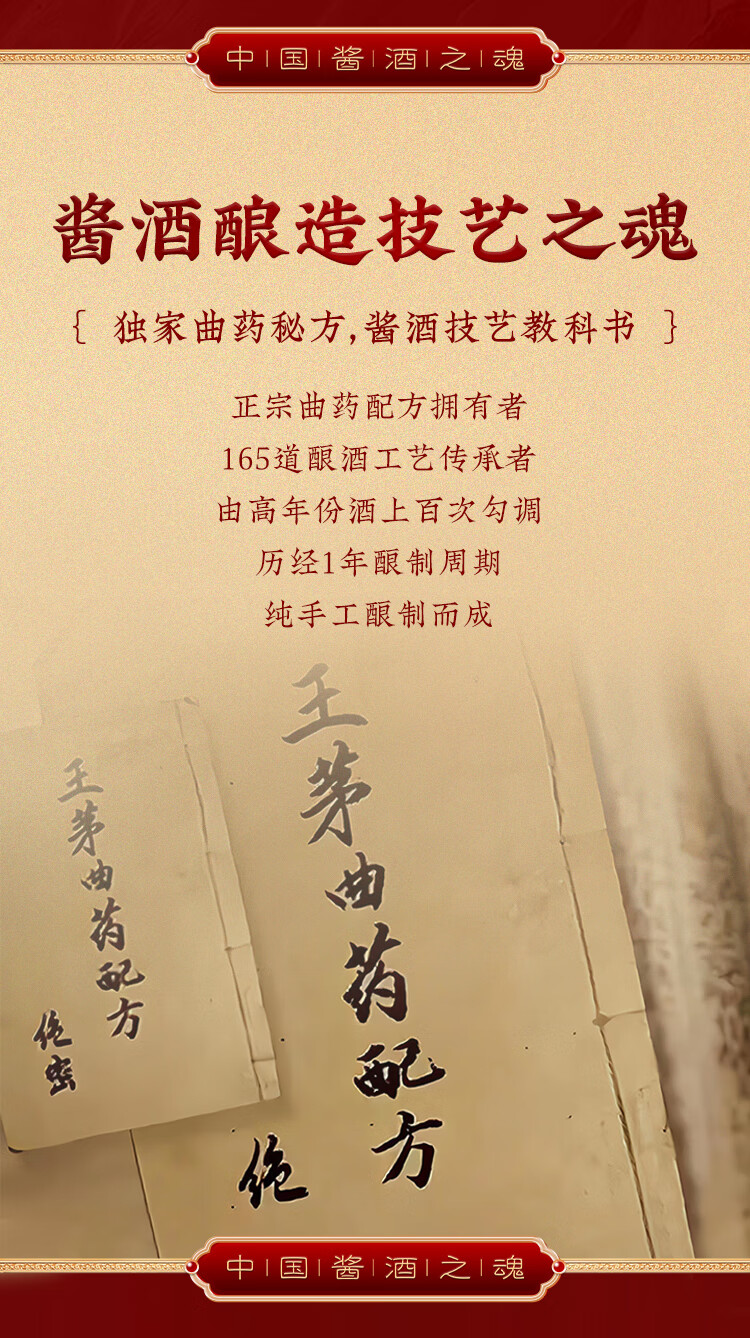 中国酱酒之魂
酱酒酿造技艺之魂
{ 独家曲药秘方,酱酒技艺教科书 }
正宗曲药配方拥有者
165道酿酒工艺传承者
由高年份酒上百次勾调
历经1年酿制周期
纯手工酿制而成
王茅曲药配方
绝密
王茅曲药配方
绝
中国酱酒之魂